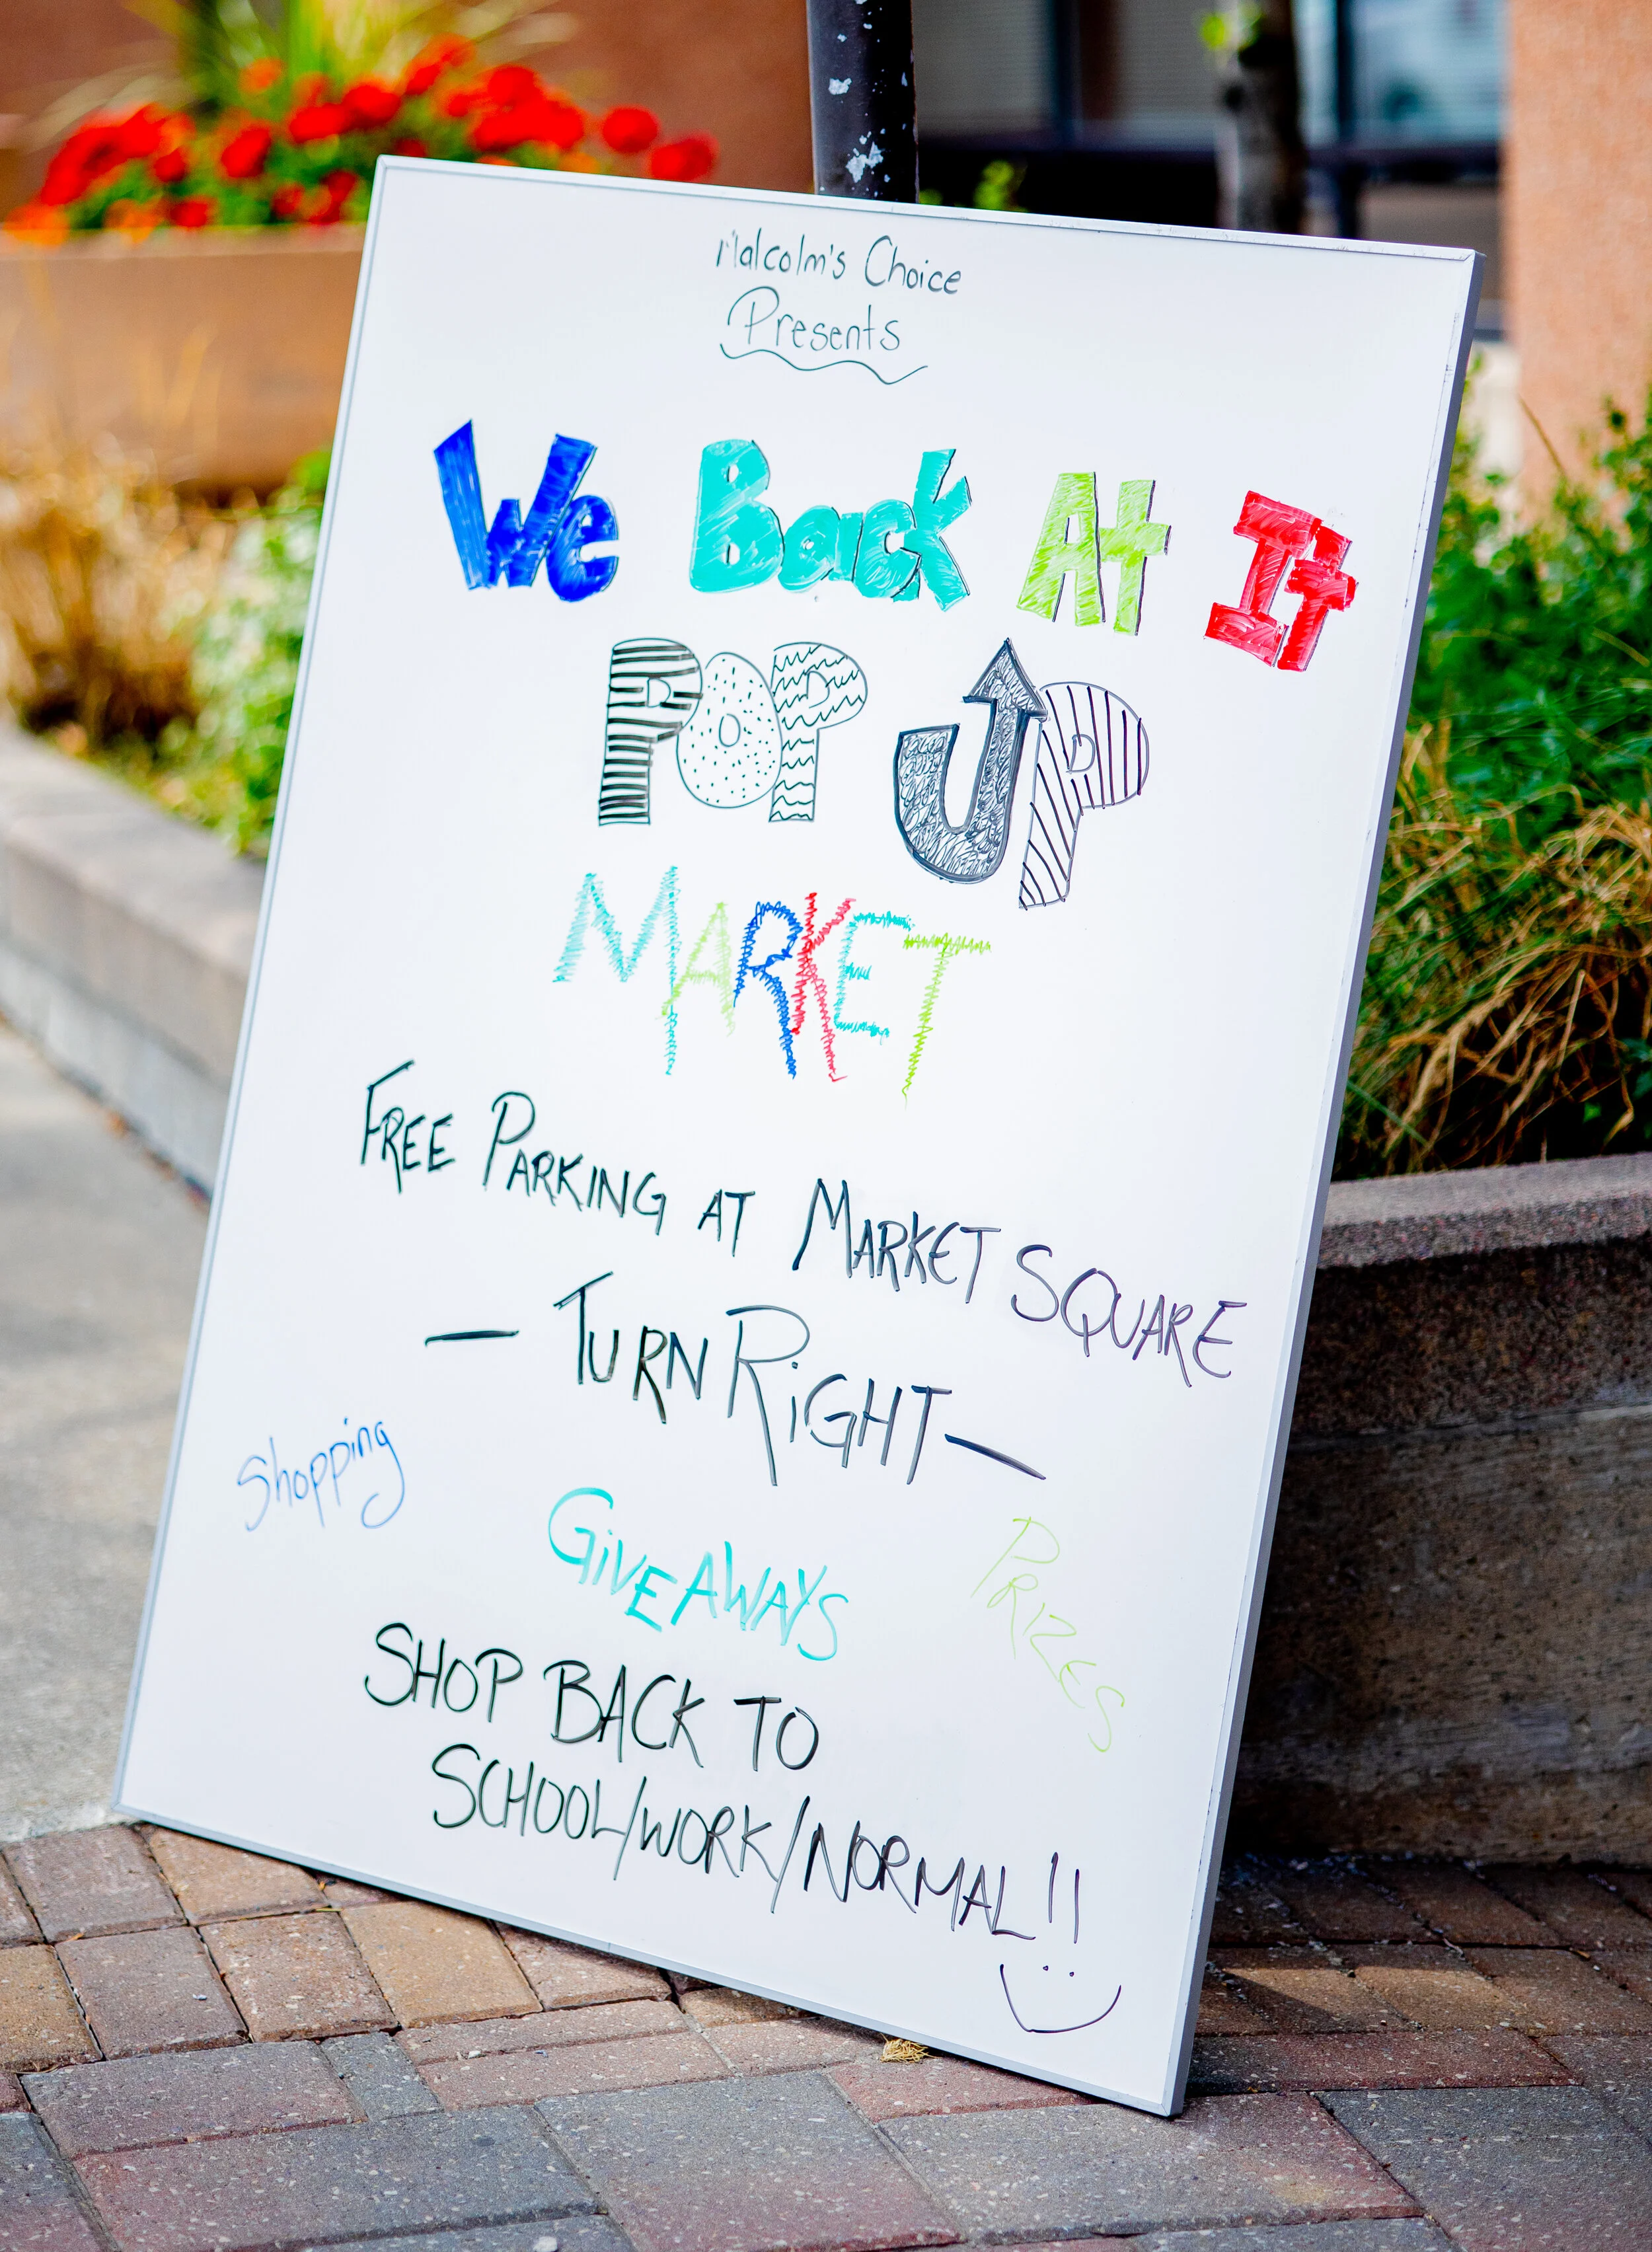 Malcolm's Choice
Presents
We Back At It
POP UP
MARKET
FREE PARKING AT MARKET SQUARE
— TURN RiGHT —
Shopping
GiVEAWAYS
PRIZES
SHOP BACK TO
SCHOOL/WORK/NORMAL!!